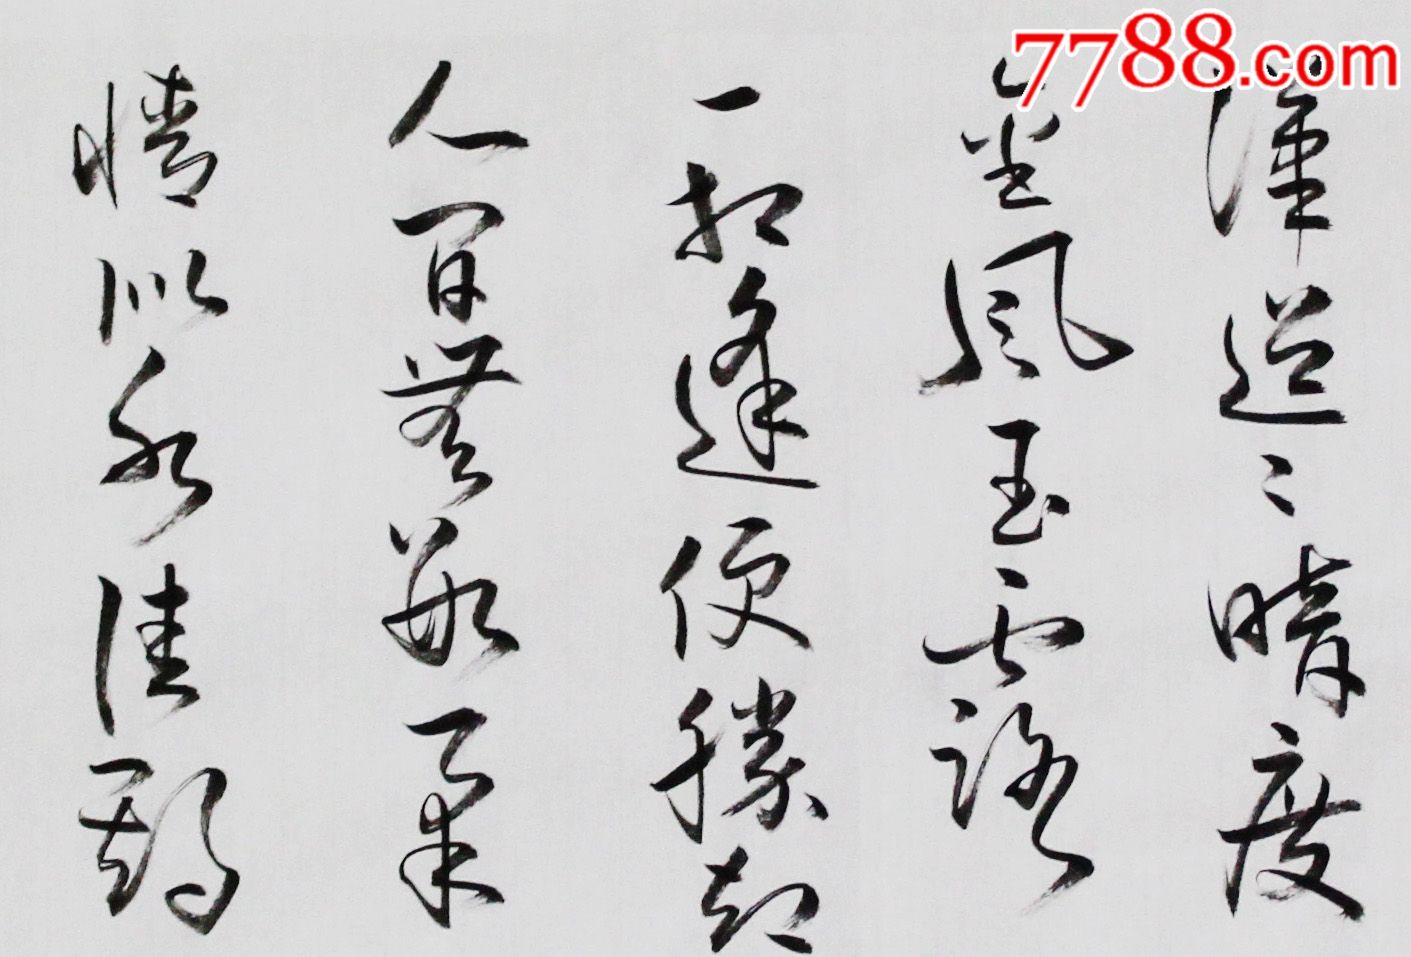 7788.com
漢迢〻暗度
金風玉露
一相逢便勝却
人間無數柔
情似水佳期